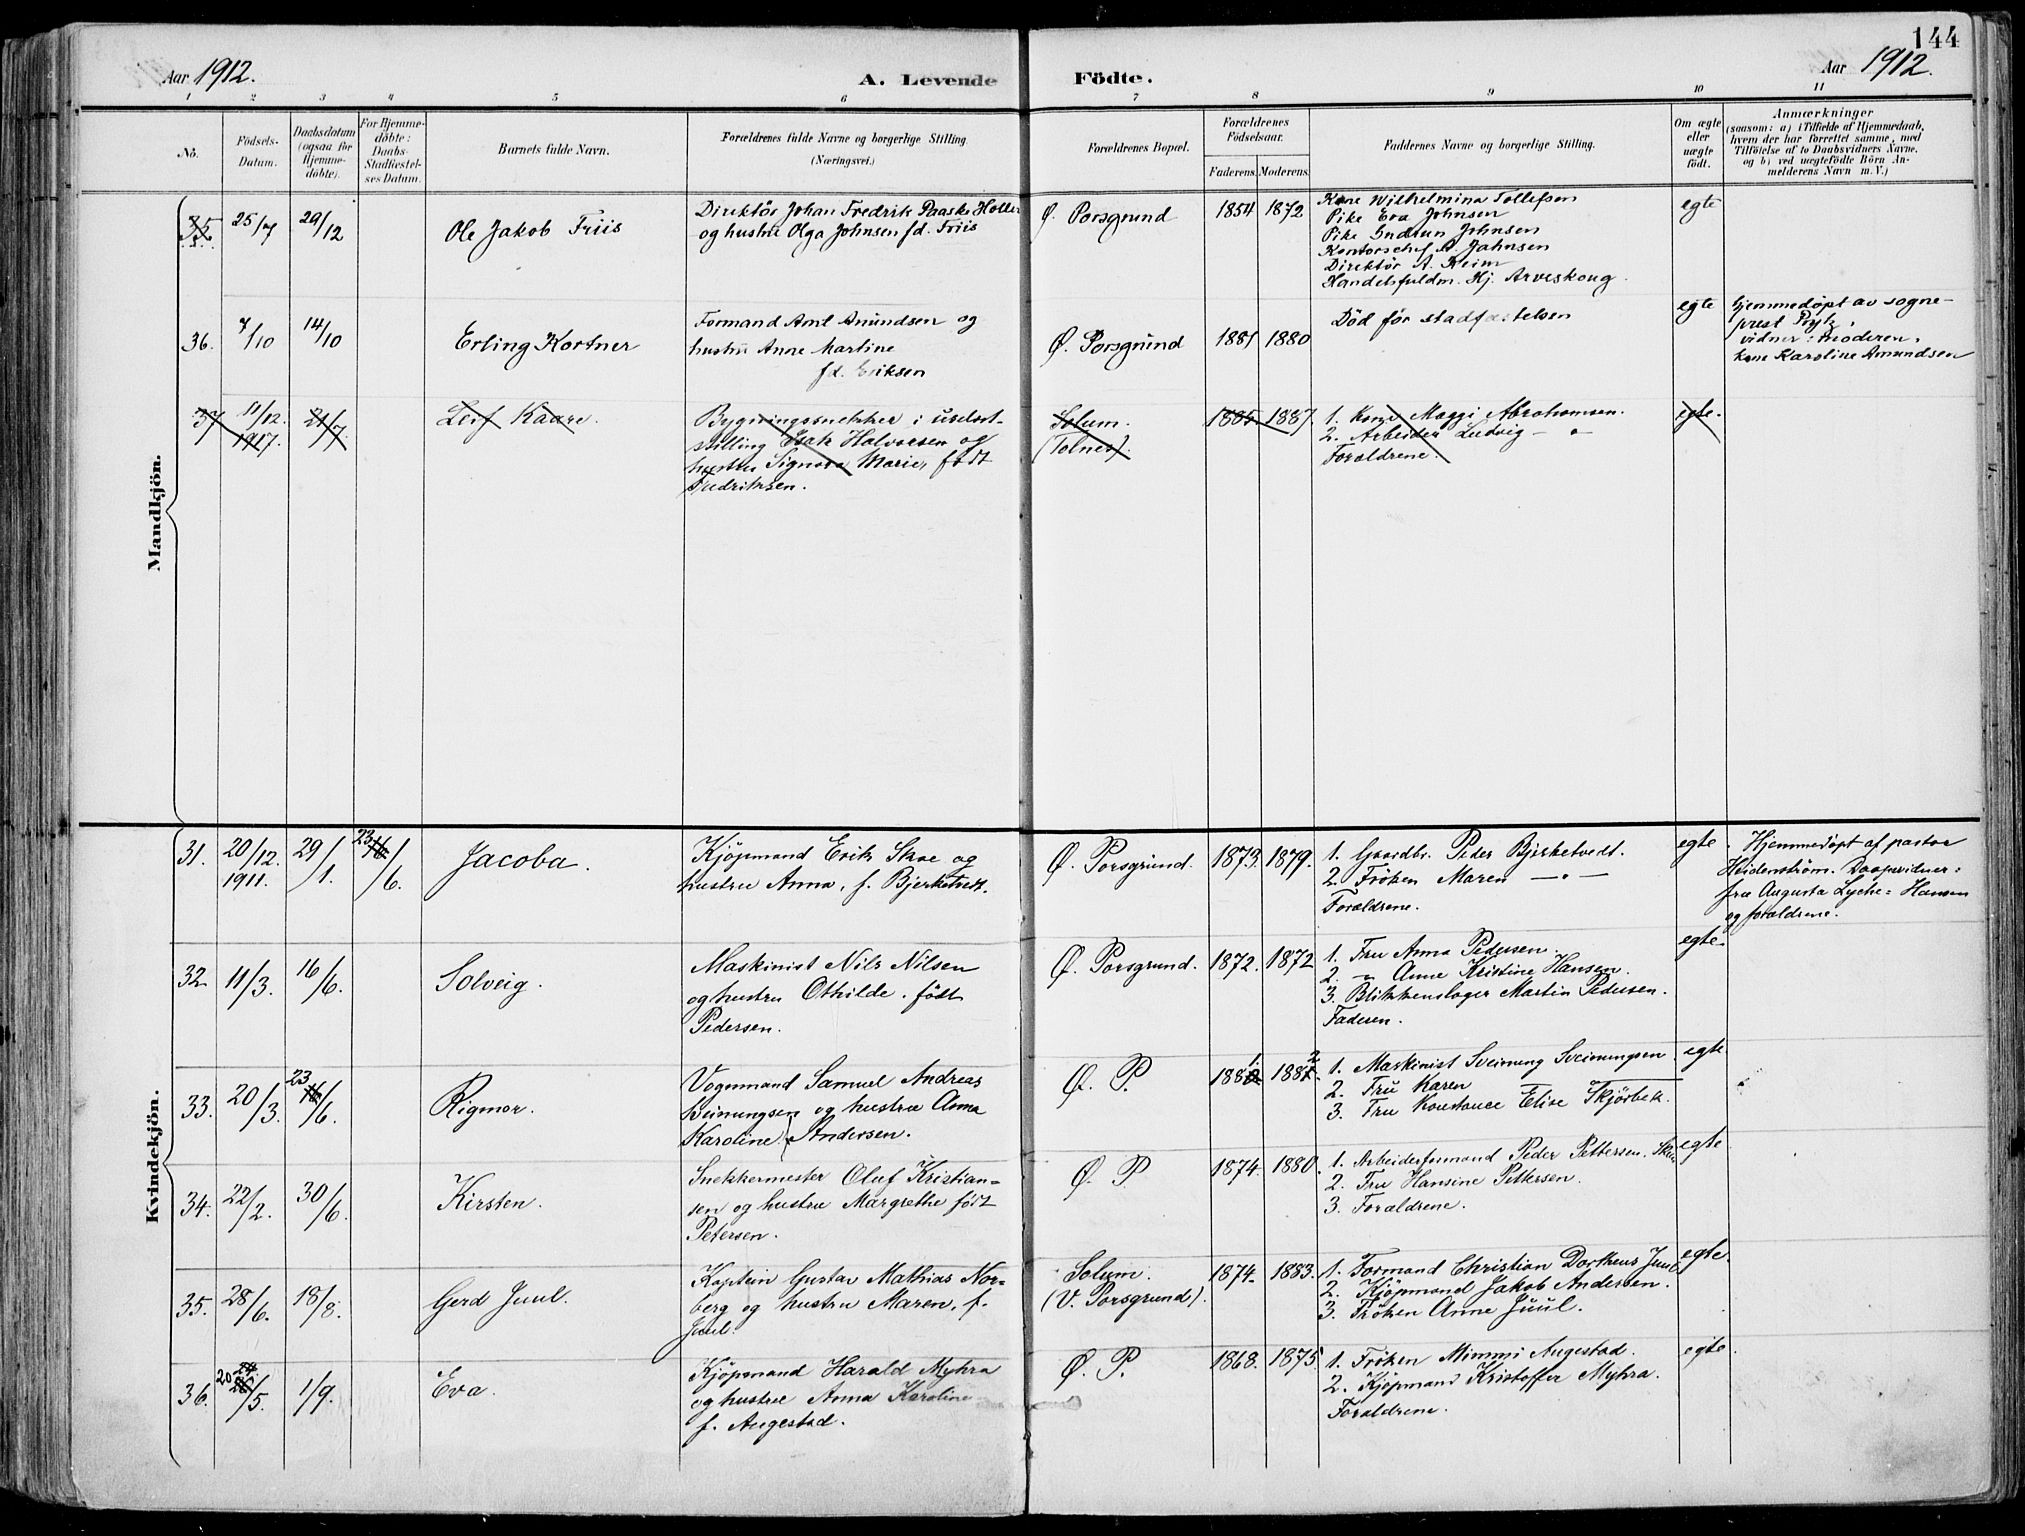 144
Aar 1912.
A. Levende
Födte.
Aar 1912.
1 2 3 4 5 6 7 8 9 10 11
No.
Födsels-
Datum.
Daabsdatum
(ogsaa for
Hjemme-
döbte).
For Hjemme-
döbte:
Daabs-
Stadfæstel-
ses Datum.
Barnets fulde Navn.
Forældrenes fulde Navne og borgerlige Stilling.
(Næringsvei.)
Forældrenes Bopæl.
Forældrenes
Födselsaar.
Faderens.
Moderens.
Faddernes Navne og borgerlige Stilling.
Om ægte
eller
uægte
födt.
Anmærkninger
(saasom: a) i Tilfælde af Hjemmedaab,
hvem der har forrettet samme, med
Tilföielse af to Daabsvidners Navne,
og b) ved uægtefödte Börn An-
melderens Navn m. V.)
Mandkjön.
35 25/7 29/12
Ole Jakob Friis
Direktör Johan Fredrik Paaske Holler
og hustru Olga Johnsen fd. Friis
Ø. Porsgrund
1854 1872
Kone Wilhelmina Tollefsen
Pike Eva Johnsen
Pike Gudrun Johnsen
Kontorschef A. Jahnsen
Direktör A. Heim
Handelsfuldm. Hj. Arveskoug.
egte
36. 7/10 14/10
Erling Kortner
Formand Amt Amundsen og
hustru Anne Martine
fd. Eriksen
Ø. Porsgrund
1881 1880
Död för stadfæstelsen
egte
Hjemmedøpt av sogne-
prest Prytz,
vidner: moderen,
kone Karoline Amundsen
37 11/12. 1917. 21/7.
Leif Kaare.
Bygningssnekker i uselvst-
stilling Isak Halvorsen og
hustru Signora Marie, født
Fredriksen.
Solum.
(Tolnes).
1885. 1887.
1. Kone Maggi Abrahamsen.
2. Arbeider Ludvig — " —
Forældrene.
egte.
Kvindekjön.
31. 20/12. 1911. 29/1. 23/6.
Jacoba.
Kjöpmand Erik Skoe og
hustru Anna, f. Bjerketvedt.
Ø. Porsgrund.
1873. 1879.
1. Gaardbr. Peder Bjerketvedt.
2. Fröken Maren — " —
Forældrene.
egte
Hjemmedøpt af pastor
Heidenstrøm. Daapsvidner:
fru Augusta Lyche-Hansen
og forældrene.
32. 11/3. 16/6.
Solveig.
Maskinist Nils Nilsen
og hustru Othilde, født
Pedersen.
Ø. Porsgrund.
1872. 1872
1. Fru Anna Pedersen.
2. — " Anne Kristine Hansen.
3. Blikkenslager Martin Pedersen.
Faderen.
egte.
33. 20/3. 23/6.
Rigmor.
Vognmand Samuel Andreas
Sveinungsen og hustru Anna
Karoline f. Andersen.
Ø. P.
1881 1882
1. Maskinist Sveinung Sveinungsen
2. Fru Karen
3. Fru Konstance Elise Skjörbek.
egte
34. 22/2. 30/6.
Kirsten.
Snekkermester Oluf Kristian-
sen og hustru Margrethe født
Petersen.
Ø. P.
1874. 1880.
1. Arbeiderformand Peder Pettersen.
2. Fru Hansine Pettersen.
3. Forældrene.
egte
35. 28/6. 18/8.
Gerd Juul.
Kaptein Gustav Mathias Nor-
berg og hustru Maren, f.
Juul.
Solum.
(V. Porsgrund).
1874. 1883.
1. Formand Christian Dortheus Juul
2. Kjöpmand Jakob Andersen.
3. Fröken Anne Juul.
egte.
36. 20/5. 1/9.
Eva.
Kjöpmand Harald Myhra
og hustru Anna Karoline
f. Augestad.
Ø. P.
1868. 1875.
1. Fröken Mimmi Augestad.
2. Kjöpmand Kristoffer Myhra.
Forældrene.
egte.